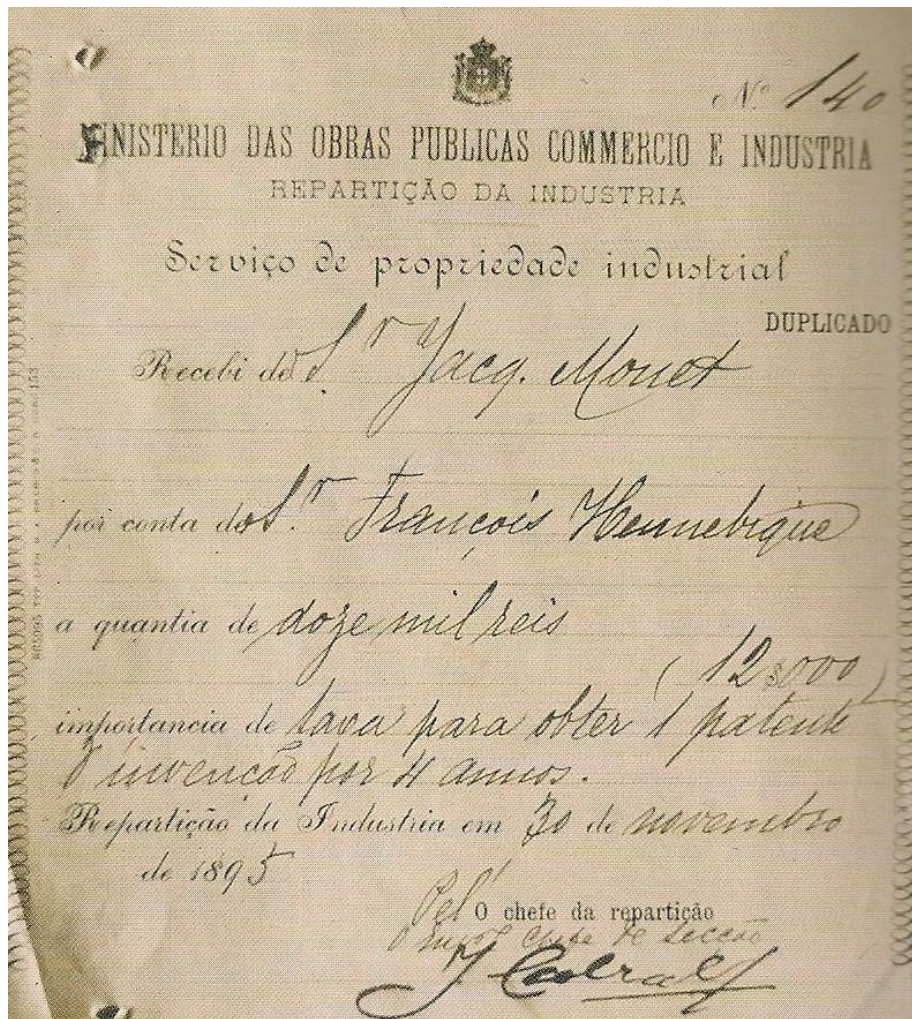 Nº 140
MINISTERIO DAS OBRAS PUBLICAS COMMERCIO E INDUSTRIA
REPARTIÇÃO DA INDUSTRIA
Serviço de propriedade industrial
DUPLICADO
Recebi do Sr Jacq. Monet
por conta do Sr. François Hennebique
a quantia de doze mil reis
(12$000)
importancia de taxa para obter 1 patente
d'invenção por 4 annos.
Repartição da Industria em 30 de novembro
de 1895
Pel' O chefe da repartição
chefe de secção
J. Cabral